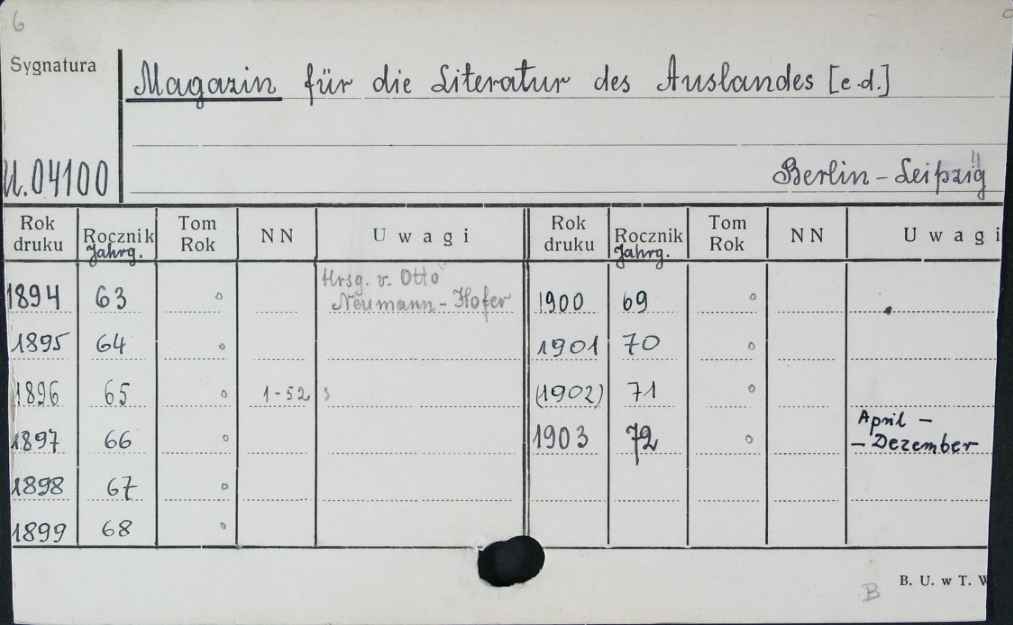 6
Sygnatura
Magazin für die Literatur des Auslandes [e.d.]
U.04100
Berlin - Leipzig
Rok druku Rocznik Jahrg. Tom Rok NN Uwagi Rok druku Rocznik Jahrg. Tom Rok NN Uwagi
Hrsg. v. Otto
1894 63 o Neumann-Hofer 1900 69 o
1895 64 o 1901 70 o
1896 65 o 1-52 s (1902) 71 o
April -
1897 66 o 1903 72 o - Dezember
1898 67 o
1899 68 o
B B. U. w T.